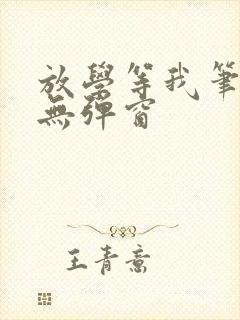 放學等我筆
無彈窗
王青意